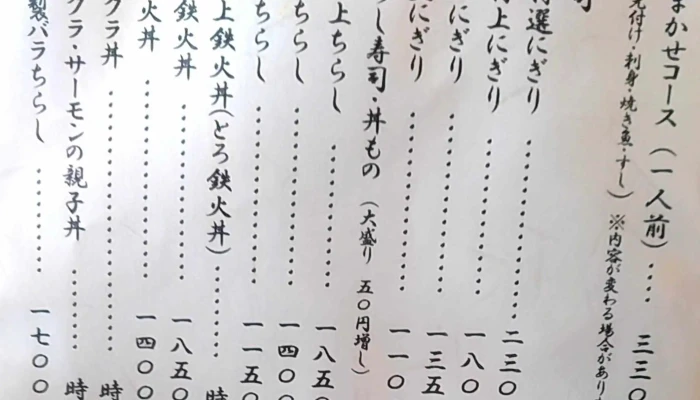 まかせコース（一人前）‥‥三三〇
付け・刺身・焼き魚・すし）※内容が変わる場合があり
選にぎり‥‥‥‥‥‥‥‥二三〇
上にぎり‥‥‥‥‥‥‥‥一八〇
にぎり‥‥‥‥‥‥‥‥一三五
にぎり‥‥‥‥‥‥‥‥一一〇
し寿司・丼もの（大盛り 五〇円増し）
上ちらし‥‥‥‥‥‥‥‥一八五〇
ちらし‥‥‥‥‥‥‥‥一四〇〇
ちらし‥‥‥‥‥‥‥‥一一五〇
上鉄火丼（とろ鉄火丼）‥‥‥‥時
鉄火丼‥‥‥‥‥‥‥‥一八五〇
火丼‥‥‥‥‥‥‥‥一四〇〇
クラ丼‥‥‥‥‥‥‥‥時
クラ・サーモンの親子丼‥‥‥‥時
製バラちらし‥‥‥‥‥‥一七〇〇